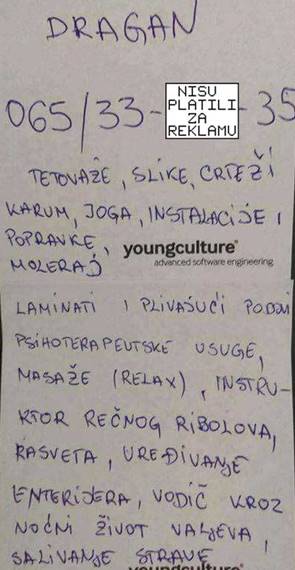 DRAGAN
065/33-
NISU
PLATILI
ZA
REKLAMU
-35
TETOVAŽE, SLIKE, CRTEŽI
KARUM, JOGA, INSTALACIJE I
POPRAVKE,
youngculture®
MOLERAJ
advanced software engineering
LAMINATI I PLIVAJUĆI PODOVI
PSIHOTERAPEUTSKE USUGE,
MASAŽE (RELAX), INSTRU-
KTOR REČNOG RIBOLOVA,
RASVETA, UREĐIVANJE
ENTERIJERA, VODIČ KROZ
NOĆNI ŽIVOT VALJEVA,
SALIVANJE STRAVE
youngculture®